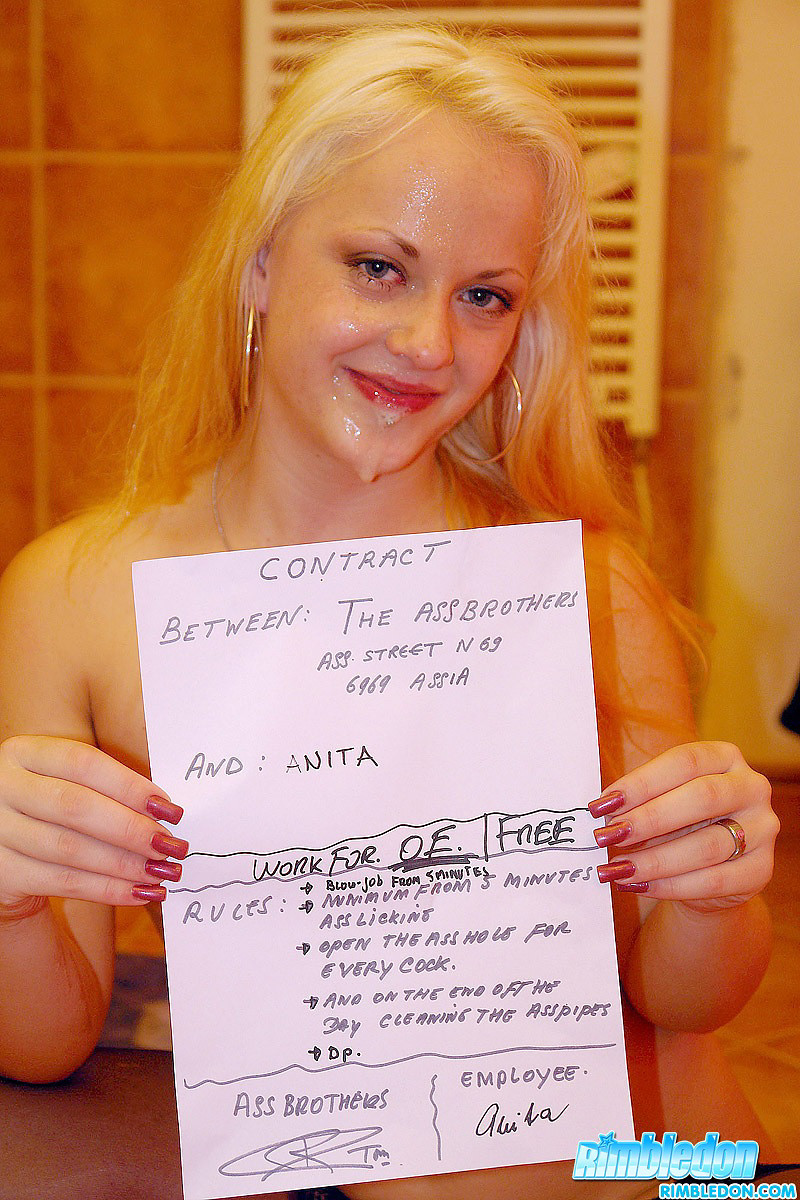 CONTRACT
BETWEEN: THE ASSBROTHERS
ASS. STREET N 69
6969 ASSIA
AND : ANITA
WORK FOR. OE. | FREE
→ BLOW-JOB FROM 5 MINUTES
RULES: → MINIMUM FROM 5 MINUTES
ASSLICKING
→ OPEN THE ASSHOLE FOR
EVERY COCK.
→ AND ON THE END OFF THE
DAY CLEANING THE ASSPIPES
→ DP.
ASSBROTHERS
EMPLOYEE.
Anita
Rimbledon
RIMBLEDON.COM